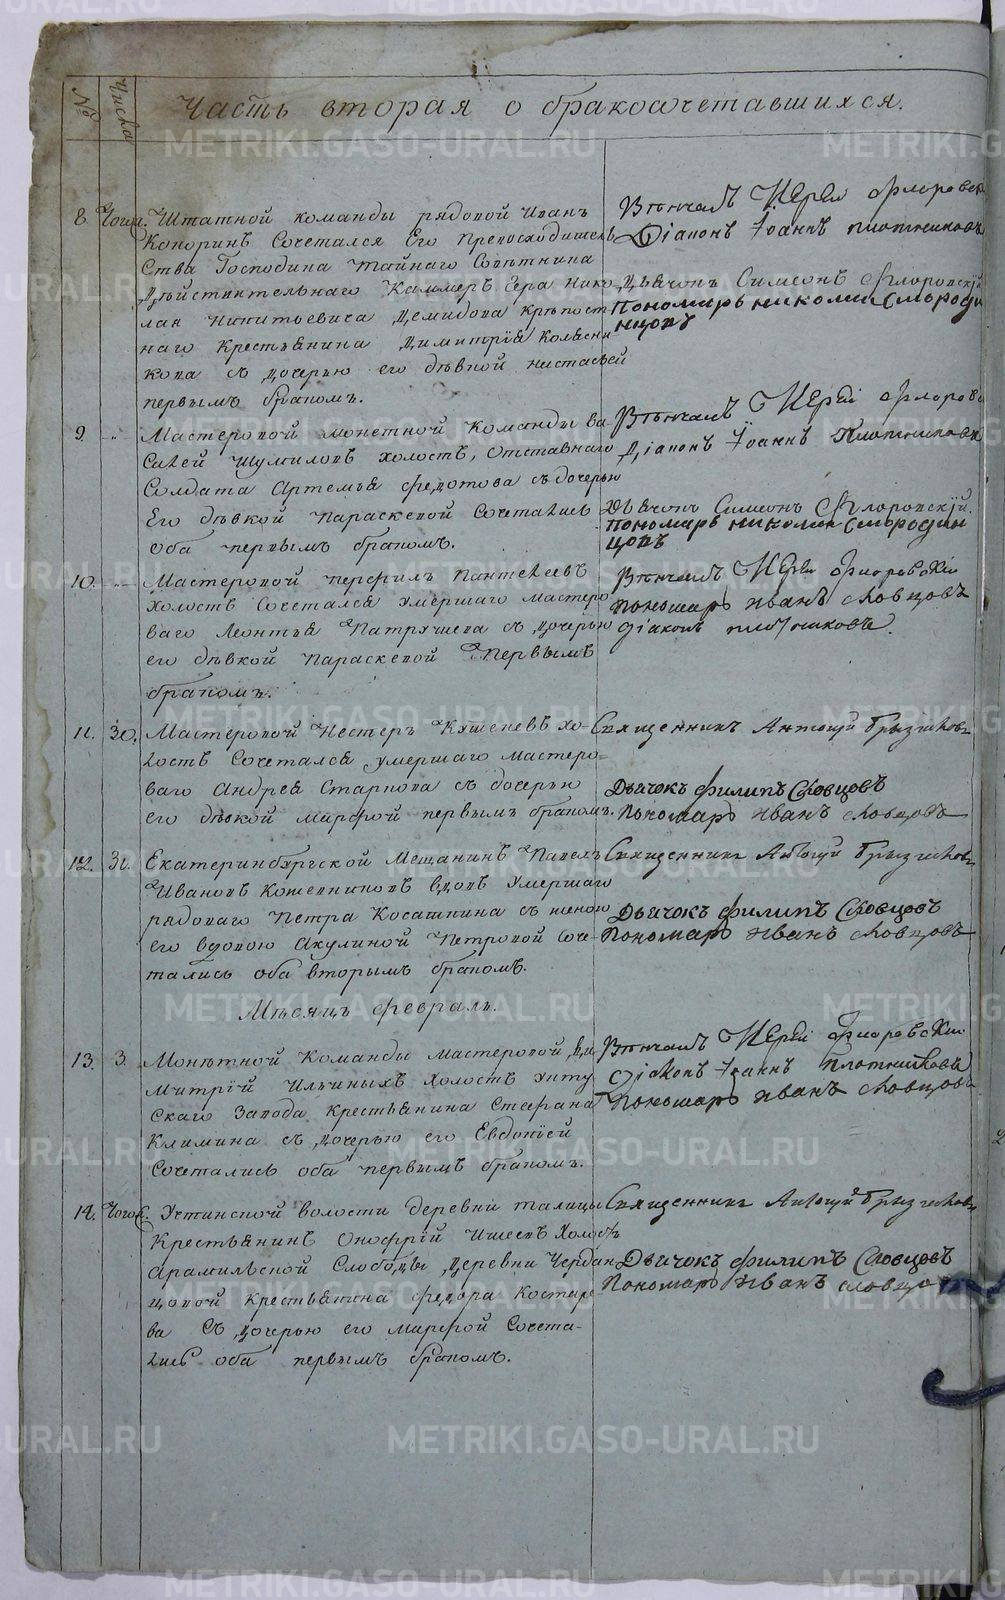 Часть вторая о бракосочетавшихся.
№ Числа
8 Тогож. Штатной команды рядовой Иванъ
Сочетался Его Превосходитель
Ства Господина тайнаго Совѣтника
Дѣйствительнаго Каммеръ Гера Нико
лая Никитьевича Демидова крѣпост
наго крестьянина Димитрїя Колясни
кова съ дочерью его дѣвкой Настасьей
первымъ бракомъ.
Вѣнчалъ Иерей Флоровск
Дїаконъ Іоаннъ Плотниковъ
Дьячокъ Симеонъ Флоровскїй
Пономарь Николай Смороди
нцовъ
9. -„- Мастеровой монетной команды Ва
силей Шумиловъ холостъ, отставнаго
Солдата Артемья Федотова съ дочерью
Его дѣвкой Параскевой Сочетались
оба первымъ бракомъ.
Вѣнчалъ Иерей Флоровс
Дїаконъ Іоаннъ Плотниковъ
Дьячокъ Симеонъ Флоровскїй.
Пономарь Николай Смородин
цовъ
10. -„- Мастеровой Перфилъ Пантелеевъ
холостъ Сочетался умершаго мастеро
ваго Леонтья Патрушева съ дочерью
его дѣвкой Параскевой Первымъ
бракомъ.
Вѣнчалъ Иерей Флоровскїй
пономарь Иванъ Словцовъ
Дїаконъ Плотниковъ.
11. 30. Мастеровой Нестеръ хо-
лостъ Сочетался умершаго мастеро-
ваго Андрея Старкова съ дочерью
его дѣвкой Марфой первымъ бракомъ.
Священникъ Антоній
Дьячокъ Филипъ Словцовъ
Пономарь Иванъ Словцовъ
12. 31. Екатеринбургской Мещанинъ Павелъ
Ивановъ Кожевниковъ вдовъ умершаго
рядоваго Петра Косаткина съ женою
его вдовою Акулиной Петровой Соче-
тались оба вторымъ бракомъ.
Священникъ Антоній
Дьячокъ Филипъ Словцовъ
Пономарь Иванъ Словцовъ
Мѣсяцъ Февраль.
13. 3. Монѣтной Команды мастеровой Ди
митрїй Ильиныхъ холостъ
скаго Завода крестьянина Стефана
Климина съ дочерью его Евдокїей
Сочетались оба первымъ бракомъ.
Вѣнчалъ Иерей Флоровскїй
Дїаконъ Іоаннъ Плотниковъ
Пономарь Иванъ Словцовъ
14. Тогож. волости деревни Талицы
Крестьянинъ Онофрїй холостъ
Арамильской Слободы деревни Чердан
цовой крестьянина Федора Костаре
ва съ дочерью его Марфой Сочета-
лись оба первымъ бракомъ.
Священникъ Антоній
Дьячокъ Филипъ Словцовъ
Пономарь Иванъ Словцовъ
METRIKI.GASO-URAL.RU